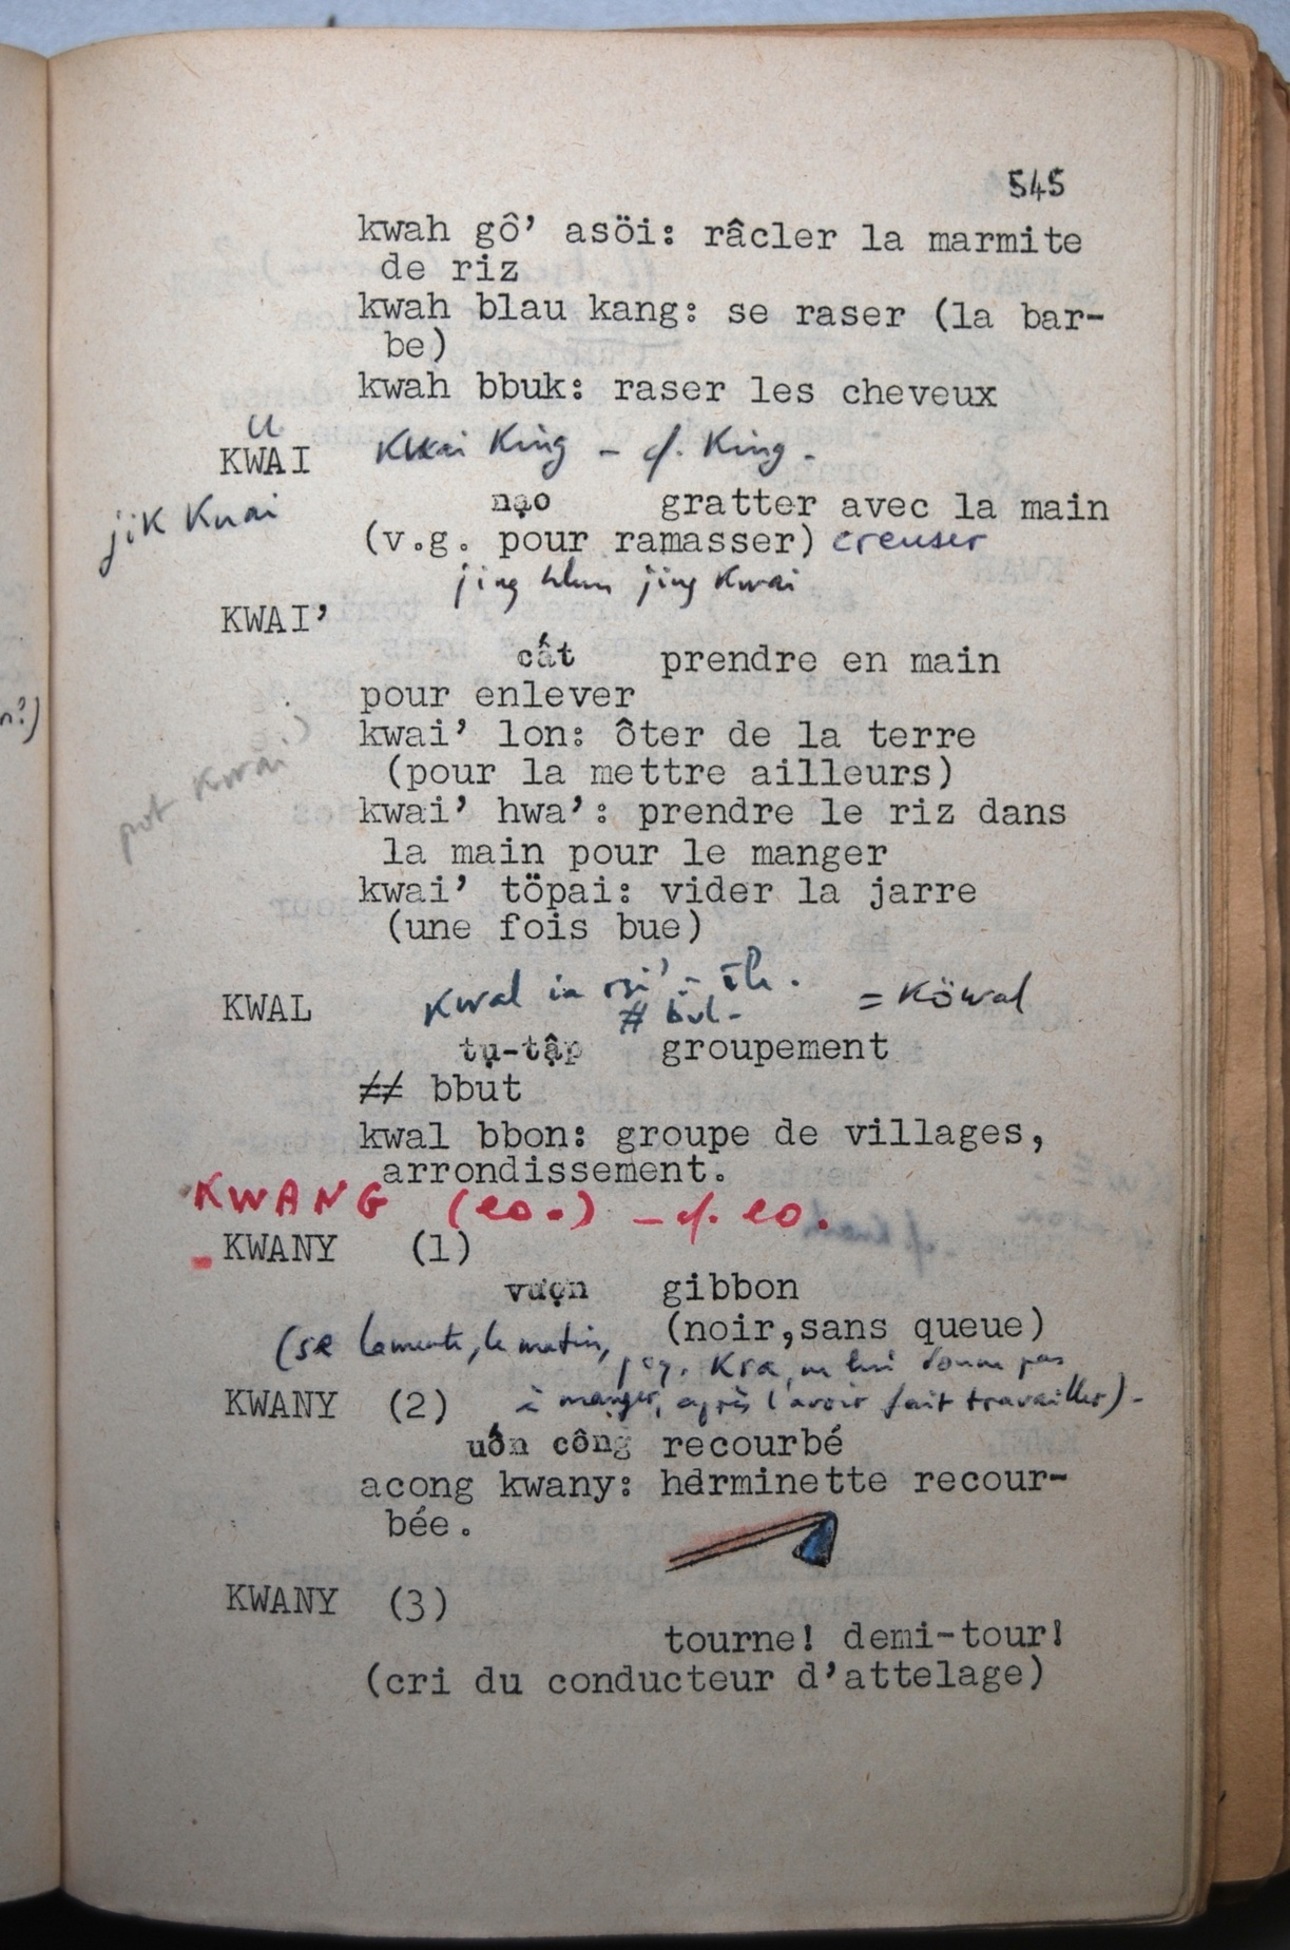 545
kwah gô’ asöi: râcler la marmite
de riz
kwah blau kang: se raser (la bar-
be)
kwah bbuk: raser les cheveux
u
KWAI Kwai King - cf. King.
jik Kuai
nạo gratter avec la main
(v.g. pour ramasser) creuser
jing jing Kwai
KWAI’
cất prendre en main
pour enlever
kwai’ lon: ôter de la terre
(pour la mettre ailleurs)
put Kwai
kwai’ hwa’: prendre le riz dans
la main pour le manger
kwai’ töpai: vider la jarre
(une fois bue)
KWAL Kwal ia = Köwal
# but-
tụ-tập groupement
## bbut
kwal bbon: groupe de villages,
arrondissement.
KWANG (eo.) - cf. eo.
KWANY (1)
vượn gibbon
(noir,sans queue)
(se lamente, le matin, pcq. Kra, ne lui donne pas
KWANY (2) à manger, après l'avoir fait travailler)-
uốn công recourbé
acong kwany: hérminette recour-
bée.
KWANY (3)
tourne! demi-tour!
(cri du conducteur d’attelage)